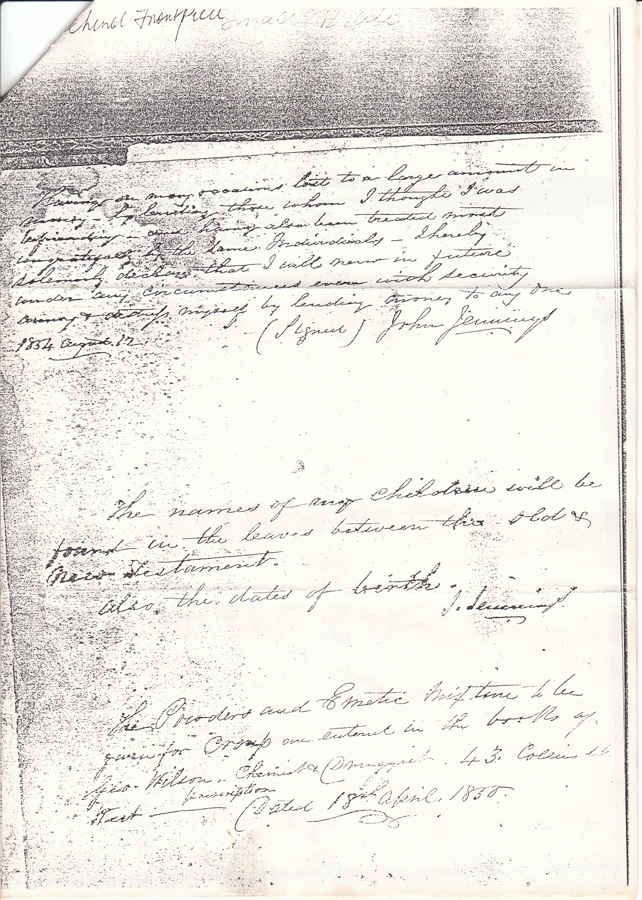 behind Frontpiece Small Bible
Having on many occasions lost to a large amount in
money by lending those whom I thought I was
befriending and being also been treated most
ungratefully by the same Individuals - I hereby
solemnly declare that I will never in future
under any circumstances even with security
annoy & distress myself by lending money to any one
1854 August 12 (Signed) John Jennings
The names of my children will be
found in the leaves between the old &
New Testament.
also the dates of birth.
J. Jennings.
The Powders and Emetic Mixture to be
given for Croup are entered in the books of
Geo. Wilson. Chemist & Druggist. 43. Collins St
prescription
East
(Dated 18th April. 1850.